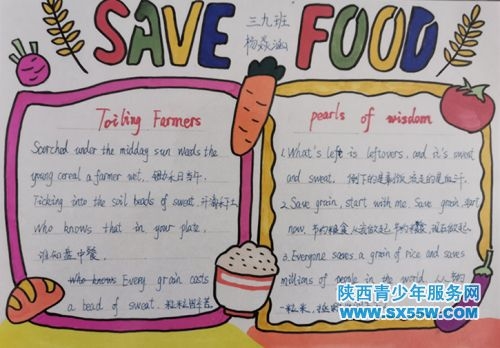 SAVE FOOD
三九班
杨炎涵
Toiling Farmers
Scorched under the midday sun weeds the
young cereal a farmer wet. 锄禾日当午
Ticking into the soil beads of sweat. 汗滴禾下土
Who knows that in your plate.
谁知盘中餐
Who knows Every grain costs
a bead of sweat. 粒粒皆辛苦
pearls of wisdom
1. What's left is leftovers, and it's sweat
and sweat. 倒下的是剩饭,流走的是血汗.
2. Save grain, start with me. Save grain, start
now. 节约粮食从我做起.节约粮食,现在做起.
3. Everyone saves a grain of rice and saves
millions of people in the world.
一粒米,
陕西青少年服务网
www.sx55w.com